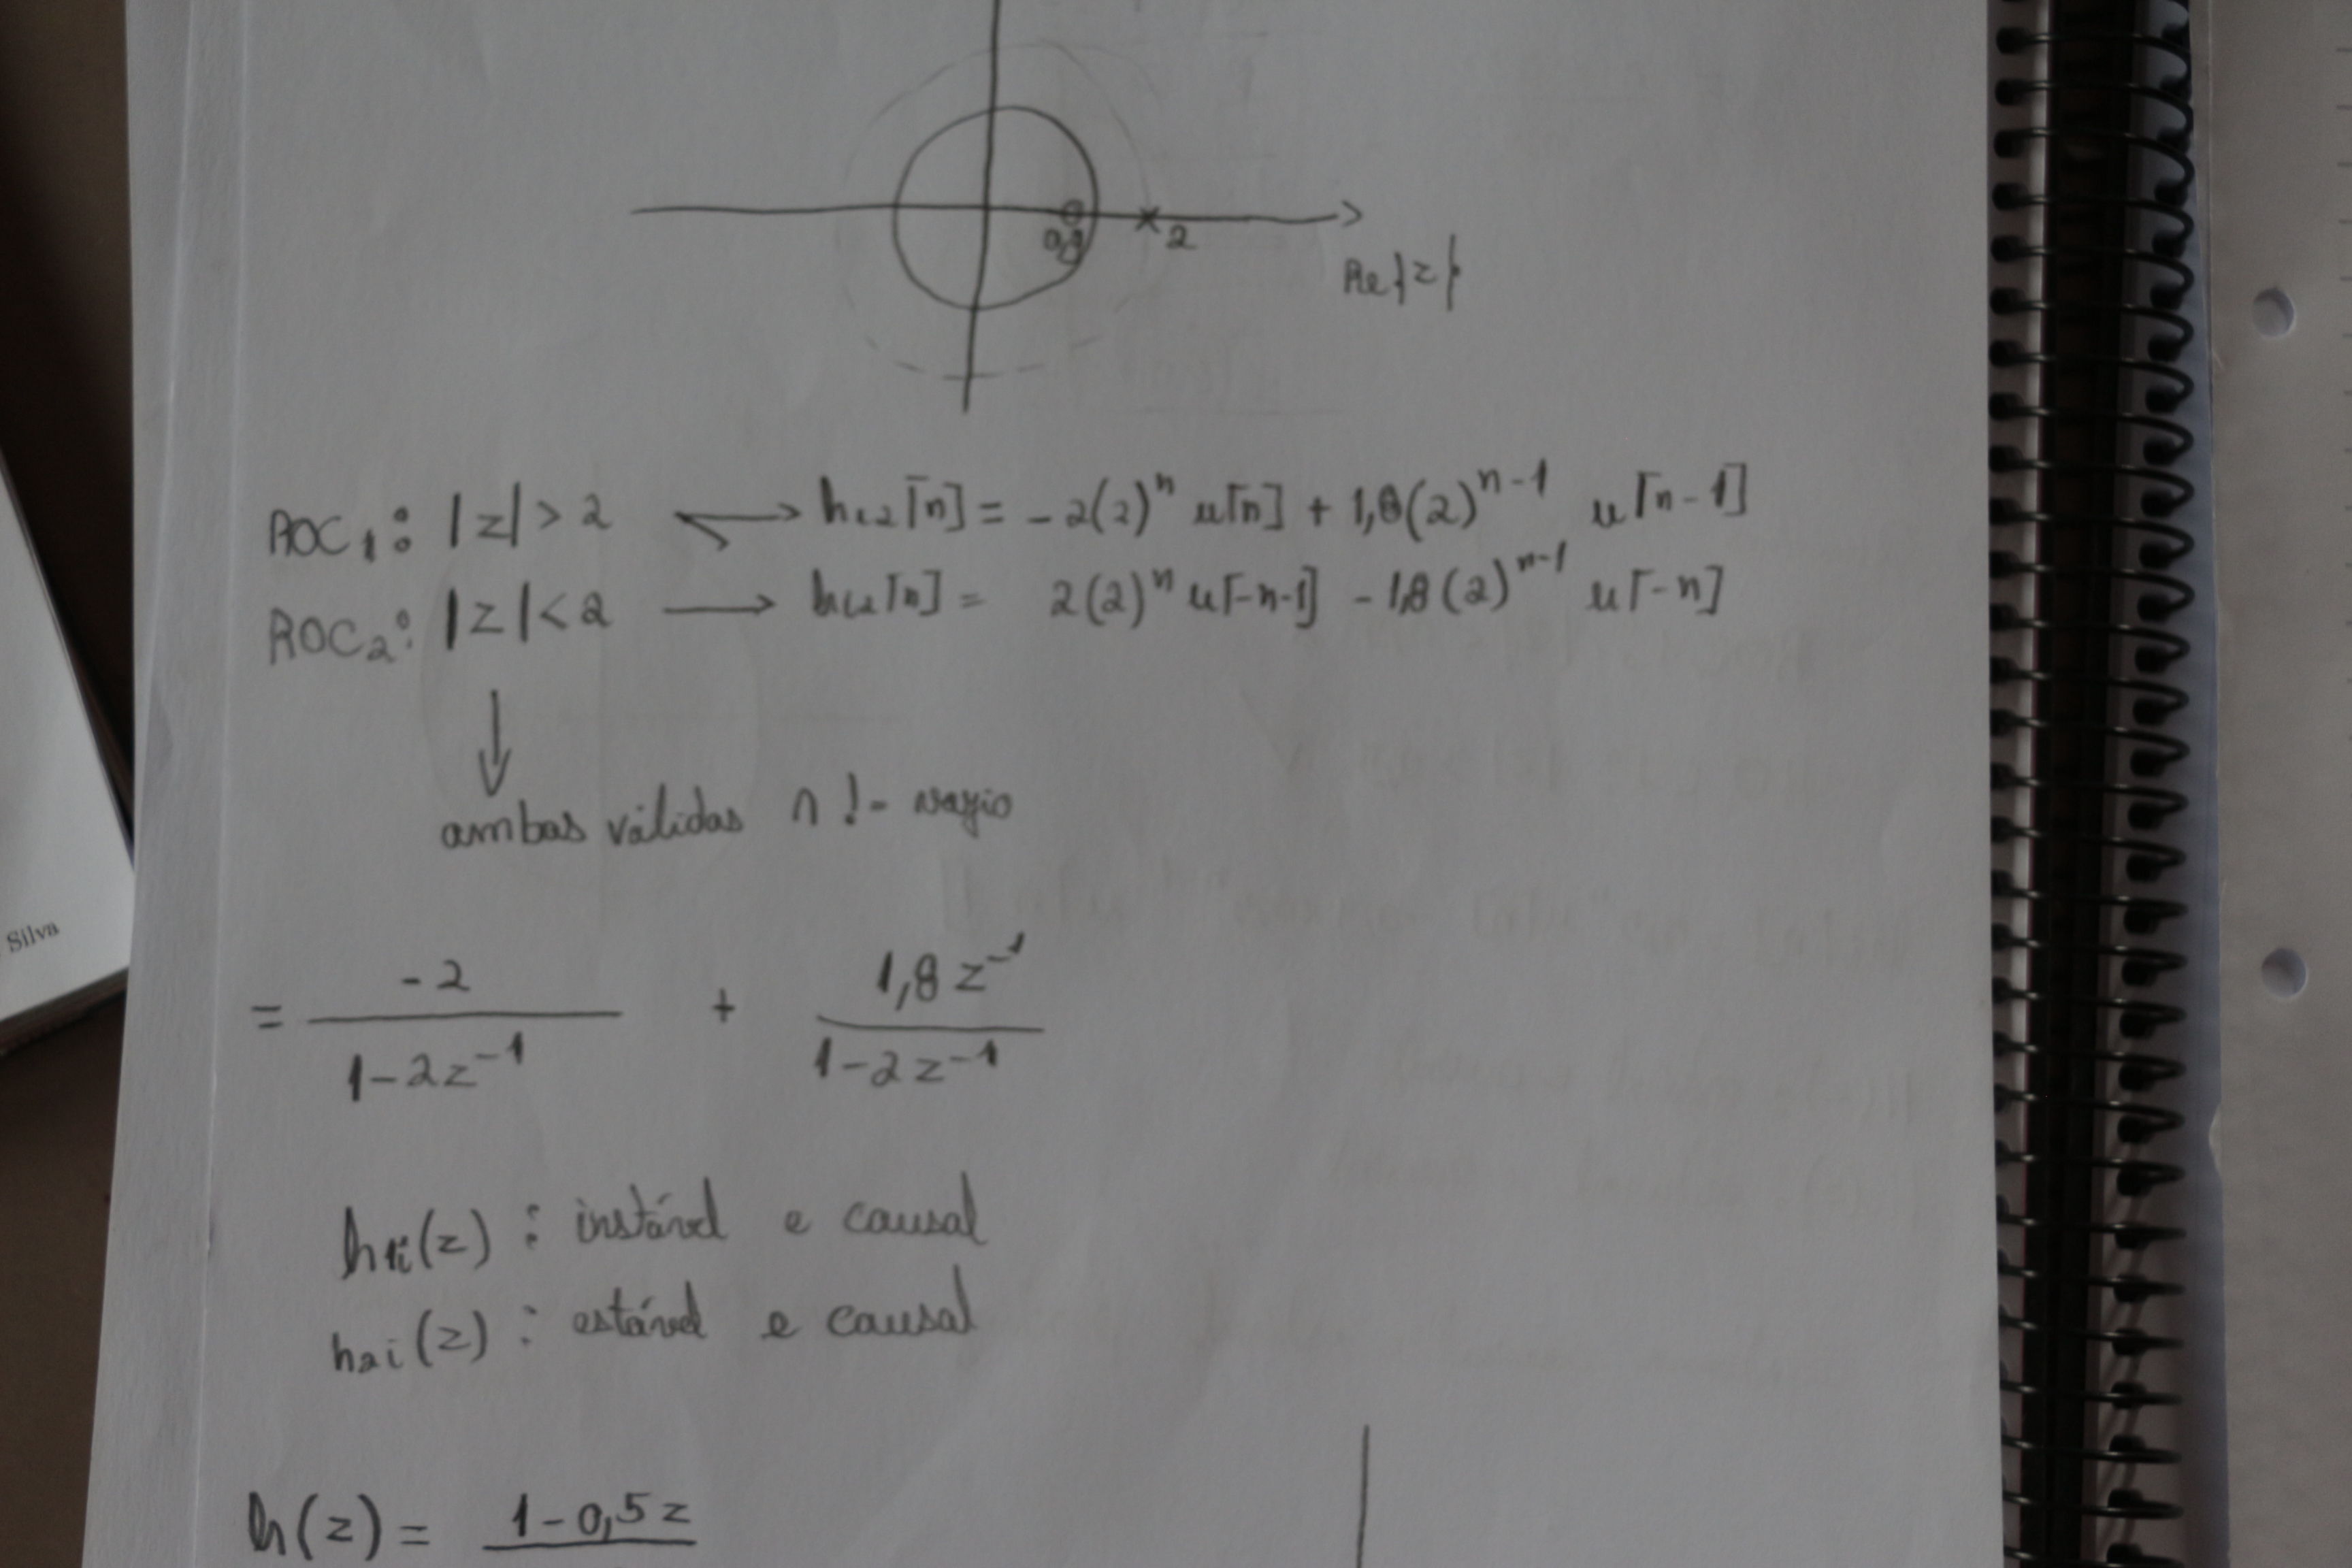 0,9
2
Re{z}
ROC₁: |z| > 2 → hᵢ₂[n] = -2(2)ⁿ u[n] + 1,8(2)ⁿ⁻¹ u[n-1]
ROC₂: |z| < 2 → hᵢ₂[n] = 2(2)ⁿ u[-n-1] - 1,8(2)ⁿ⁻¹ u[-n]
ambas válidas ∩ != vazio
= -2 / (1-2z⁻¹) + 1,8z⁻¹ / (1-2z⁻¹)
h₁ᵢ(z) : instável e causal
h₂ᵢ(z) : estável e causal
h(z) = 1-0,5z
Silva